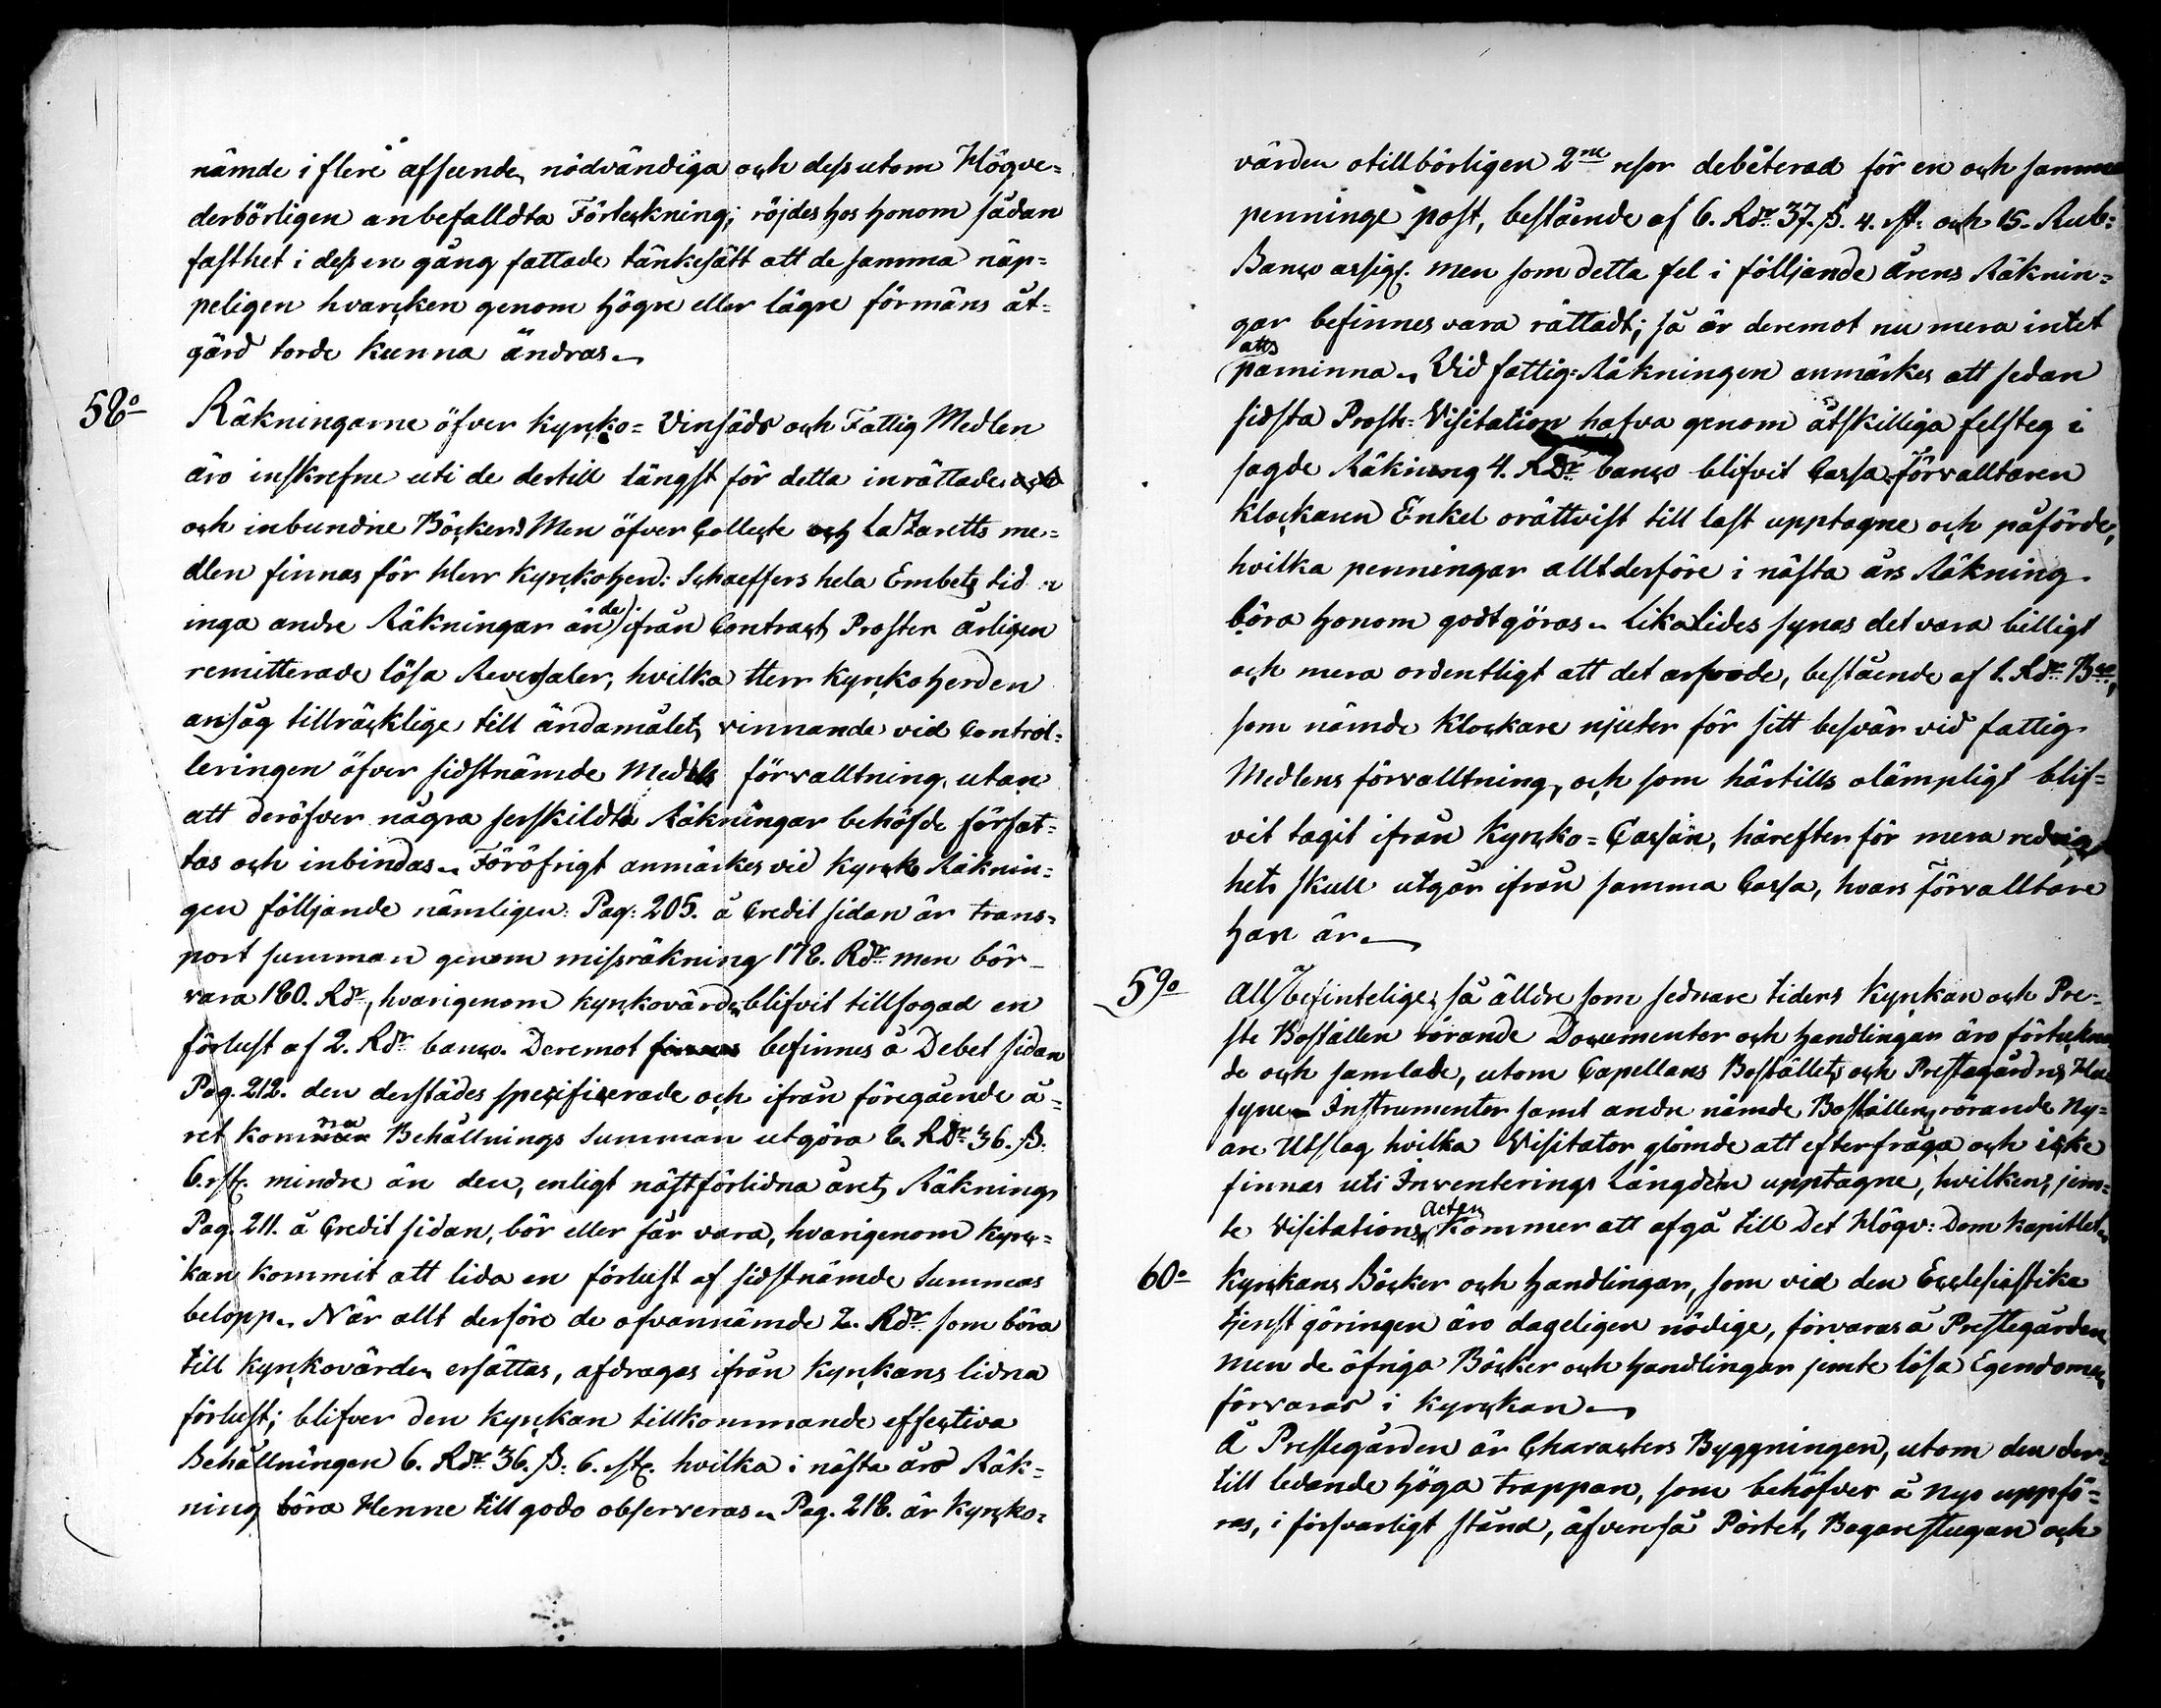 nämde i flere afseende, nödvändiga och dessutom Högve=
derbörligen anbefalldta Förteckning; röjdes hos honom sådan
fasthet i dess en gång fattade tänkesätt att de samma näp=
peligen hvarcken genom högre eller lägre förmäns åt=
gärd torde kunna ändras.
58o Räkningarne öfver Kyrcko= Vinsäds och Fattig Medlen
äro inskrefne uti de dertill längst för detta inrättade
och inbundne Böcker. Men öfver Collecte och Lazaretts me=
dlen finnas för Herr Kyrckoherd: Schaeffers hela Embets tid
inga andre Räkningar än de ifrån Contracts Prosten årligen
remitterade lösa Reversaler, hvilka Herr Kyrckoherden
ansåg tillräcklige till ändamålets vinnande vid Control=
leringen öfver sidstnämde Medels förvalltning, utan
att deröfver några serskildta Räkningar behöfde förfat=
tas och inbindas. Föröfrigt anmärkes vid Kyrcko Räknin=
gen följjande nämligen: Pag: 205. å Credit sidan är trans=
port summan genom missräkning 178. Rdr men bör
vara 180. Rdr, hvarigenom Kyrckovärden blifvit tillfogad en
förlust af 2. Rdr banco. Deremot finnes befinnes å Debet sidan
Pag. 212. den derstädes specificerade och ifrån föregående å=
ret komna Behållnings Summan utgöra 8. Rdr 36. ß.
6. rst. mindre än den, enligt nästförlidna årets Räknings
Pag. 211. å Credit sidan, bör eller får vara, hvarigenom Kyrc=
kan kommit att lida en förlust af sidstnämde Summas
belopp. När allt derföre de ofvannämde 2. Rdr som böra
till Kyrckovärden ersättas, afdragas ifrån Kyrckans lidna
förlust; blifver den Kyrckan tillkommande effectiva
Behållningen 6. Rdr 36. ß. 6. rst. hvilka i nästa års Räk=
ning böra Henne till godo observeras. Pag. 218. är Kyrcko=
värden otillbörligen 2ne resor debiterad för en och samma
penninge post, bestående af 6. Rdr 37. ß. 4. rst. och 15. Rub:
Banco assign. men som detta fel i följjande årens Räknin=
gar befinnes vara rättadt; så är deremot nu mera intet
att
påminna. Vid fattig=Räkningen anmärkes att sedan
sidsta Prost=Visitation hafva genom åtskilliga felsteg i
sagde Räkning 4. Rdr banco blifvit Cassa förvalltaren
Klockaren Enkel orättvist till last upptagne och påförde,
hvilka penningar alltderföre i nästa års Räkning
böra honom godtgöras. Likaledes synes det vara billigt
och mera ordentligt att det arfvode, bestående af 1. Rdr Bco,
som nämde Klockare njuter för sitt besvär vid fattig
Medlens förvalltning, och som härtills olämpligt blif=
vit tagit ifrån Kyrcko=Cassan, härefter för mera redig
hets skull utgår ifrån samma Cassa, hvars Förvalltare
han är.
59o Alla befintelige, så älldre som sednare tiders Kyrckan och Pre=
ste Boställen rörande Documenter och handlingar äro förteckna
de och samlade, utom Capellans Boställets och Prestegårdens Hus
syne= Instrumenter samt andre nämde Boställen rörande Ny=
are Utslag hvilka Visitator glömde att efterfråga och icke
finnas uti Inventerings Längden upptagne, hvilken, jem=
Acten
te Visitations Kommer att afgå till Det Högv: Dom Kapitlet.
60o Kyrckans Böcker och handlingar, som vid den Ecclesiastika
tjenstgöringen äro dageligen nödige, förvaras å Prestegården
men de öfriga Böcker och handlingar jemte lösa Egendomen
förvaras i Kyrckan.
Å Prestegården är Characters Byggningen, utom den der=
till ledande höga trappan, som behöfver å nyo uppfö=
ras, i försvarligt stånd, äfvenså Pörtet, Bagarestugan och